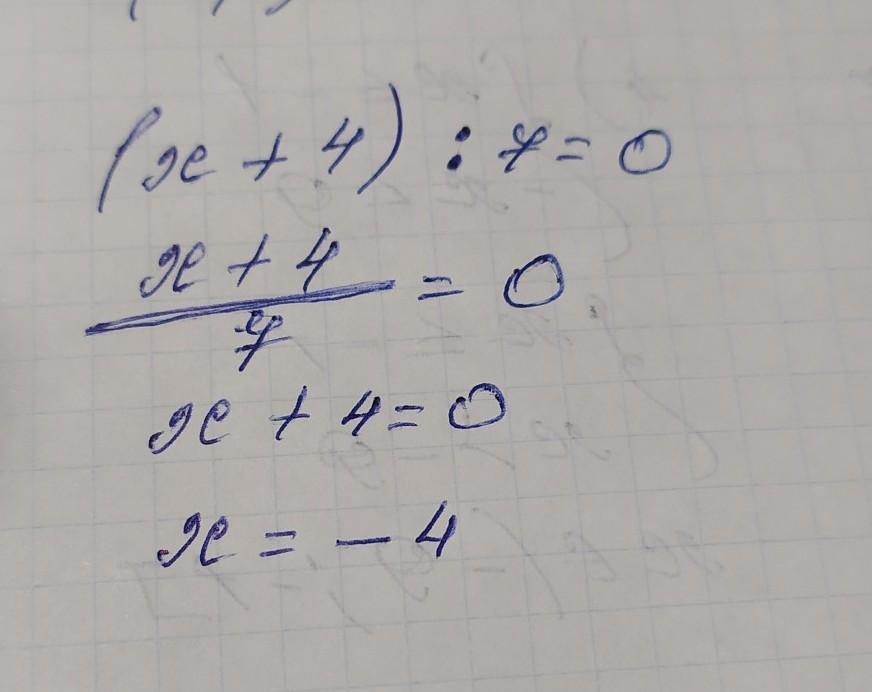 (x + 4) : 7 = 0
x + 4 / 7 = 0
x + 4 = 0
x = - 4